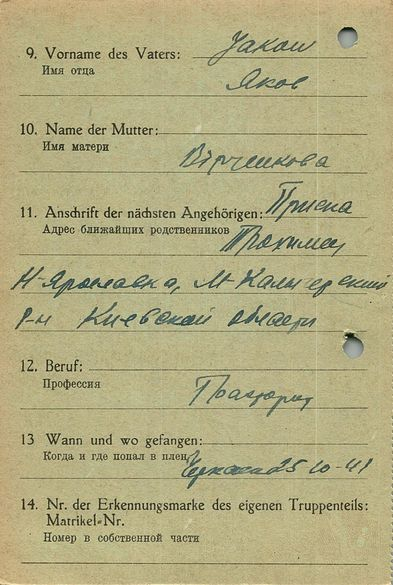 9. Vorname des Vaters:
Имя отца
Яков
10. Name der Mutter:
Имя матери
11. Anschrift der nächsten Angehörigen:
Адрес ближайших родственников
Н-Ярославка,
р-н Киевской области
12. Beruf:
Профессия
13 Wann und wo gefangen:
Когда и где попал в плен
25-10-41
14. Nr. der Erkennungsmarke des eigenen Truppenteils:
Matrikel=Nr.
Номер в собственной части